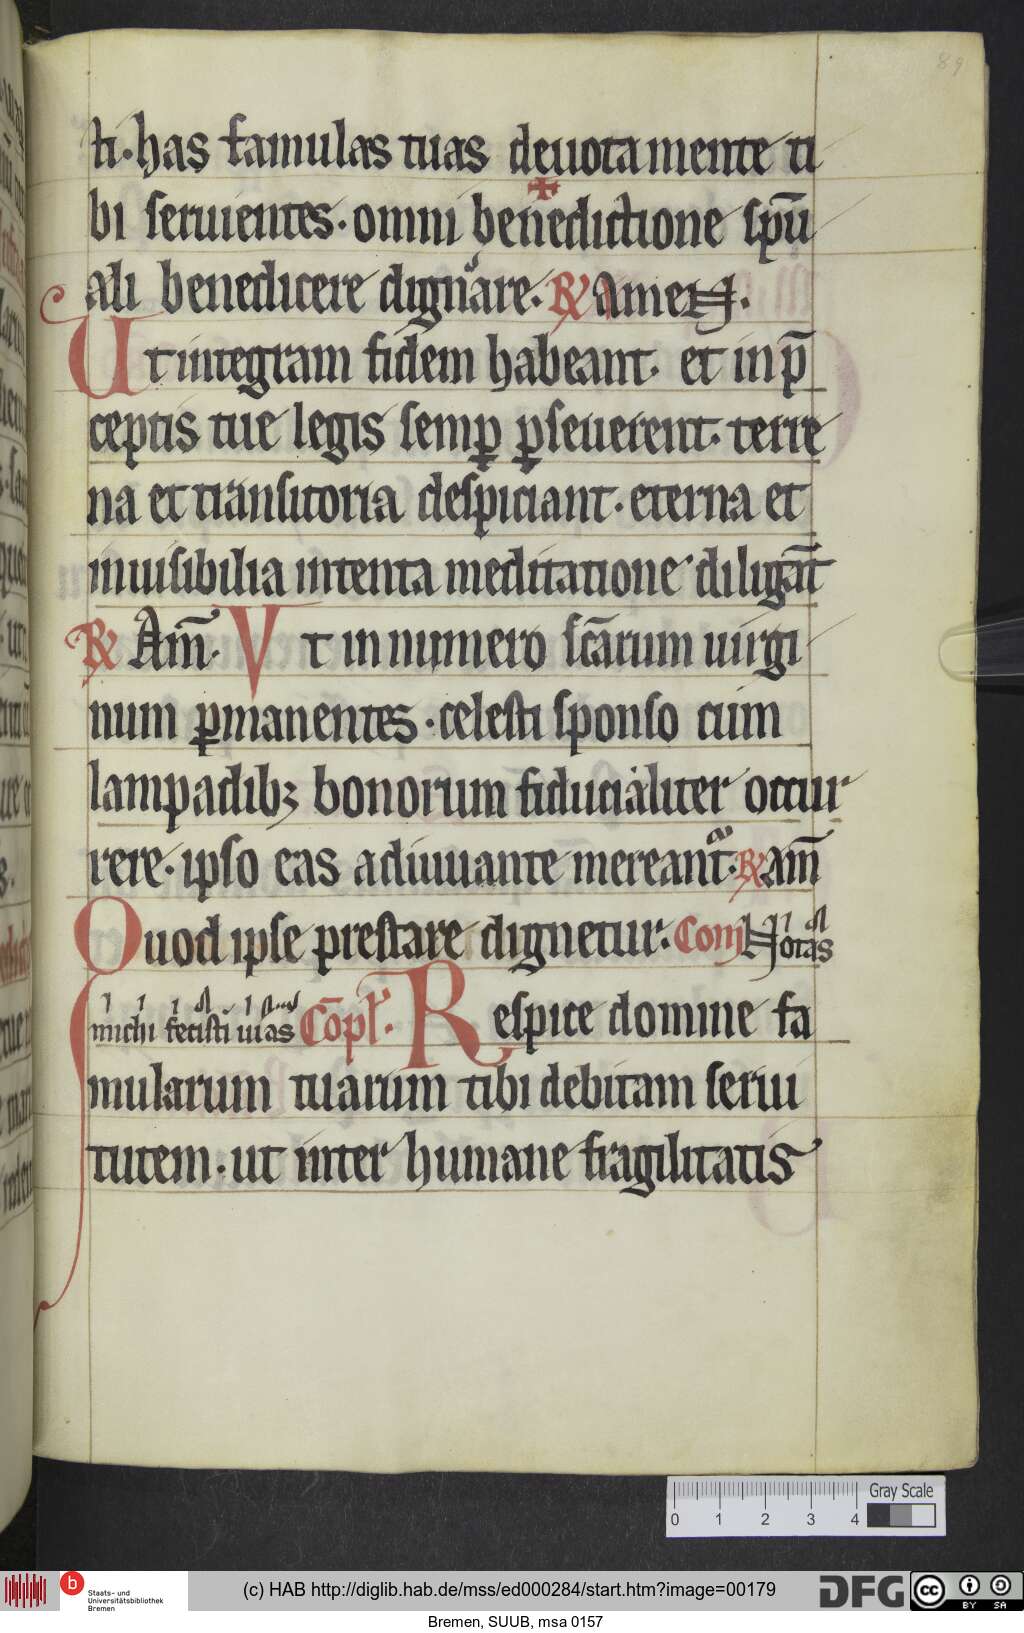 89
ti · has famulas tuas deuota mente ti
bi seruientes · omni benedictione sp̄u
ali benedicere dignare · ℟ Amen ·
Ut integram fidem habeant · et in p̄
ceptis tue legis semꝑ ꝑseuerent · terre
na et transitoria despiciant · eterna et
inuisibilia intenta meditatione diligāt
℟ Am̄ · Vt in numero sc̄arum uirgi
num ꝑmanentes · celesti sponso cum
lampadibꝫ bonorum fiducialiter occur
rere · ipso eas adiuuante mereant᷑ · ℟ am̄
Quod ipse prestare dignetur · Com̄ Notas
michi fecisti uias Cōpl̄ · Respice domine fa
mularum tuarum tibi debitam serui
tutem · ut inter humane fragilitatis
0 1 2 3 4 Gray Scale
b Staats- und Universitätsbibliothek Bremen
(c) HAB http://diglib.hab.de/mss/ed000284/start.htm?image=00179
DFG cc BY SA
Bremen, SUUB, msa 0157